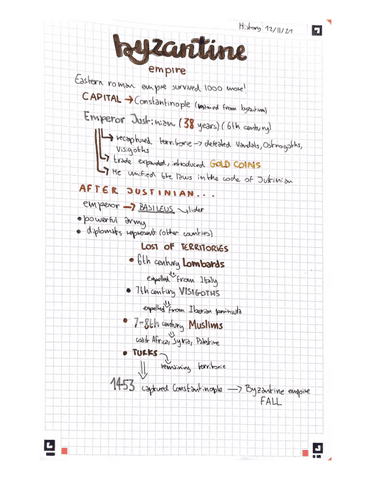 History 12/11/21
byzantine
empire
Eastern roman empire survived 1000 more!
CAPITAL → Constantinople (renamed from byzantium)
Emperor Justinian (38 years) (6th century)
→ recaptured territorie → defeated Vandals, Ostrogoths,
Visigoths
→ trade expanded, introduced GOLD COINS
→ He unified the laws in the code of Justinian
AFTER JUSTINIAN...
emperor → BASILEUS
• powerful army
• diplomats represent (other countries)
LOST OF TERRITORIES
• 6th century Lombards
expelled from Italy
• 7th century VISIGOTHS
expelled from Iberian peninsula
• 7-8th century Muslims
Africa, Syria, Palestine
• TURKS
remaining territorie
1453 captured Constantinople → Byzantine empire
FALL